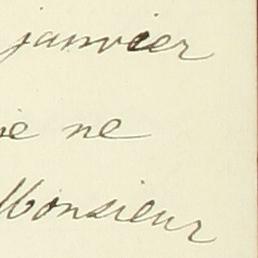 janvier
ne
Monsieur